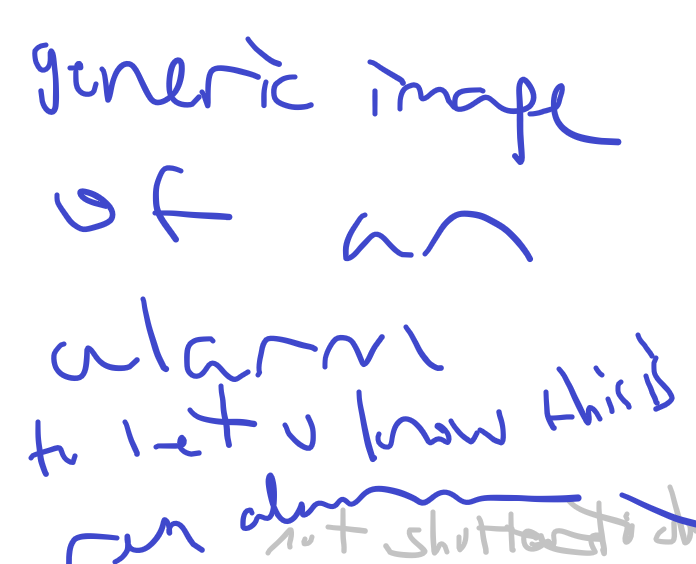 generic image
of an
alarm
to let u know this is
an alarm
not shuttersto